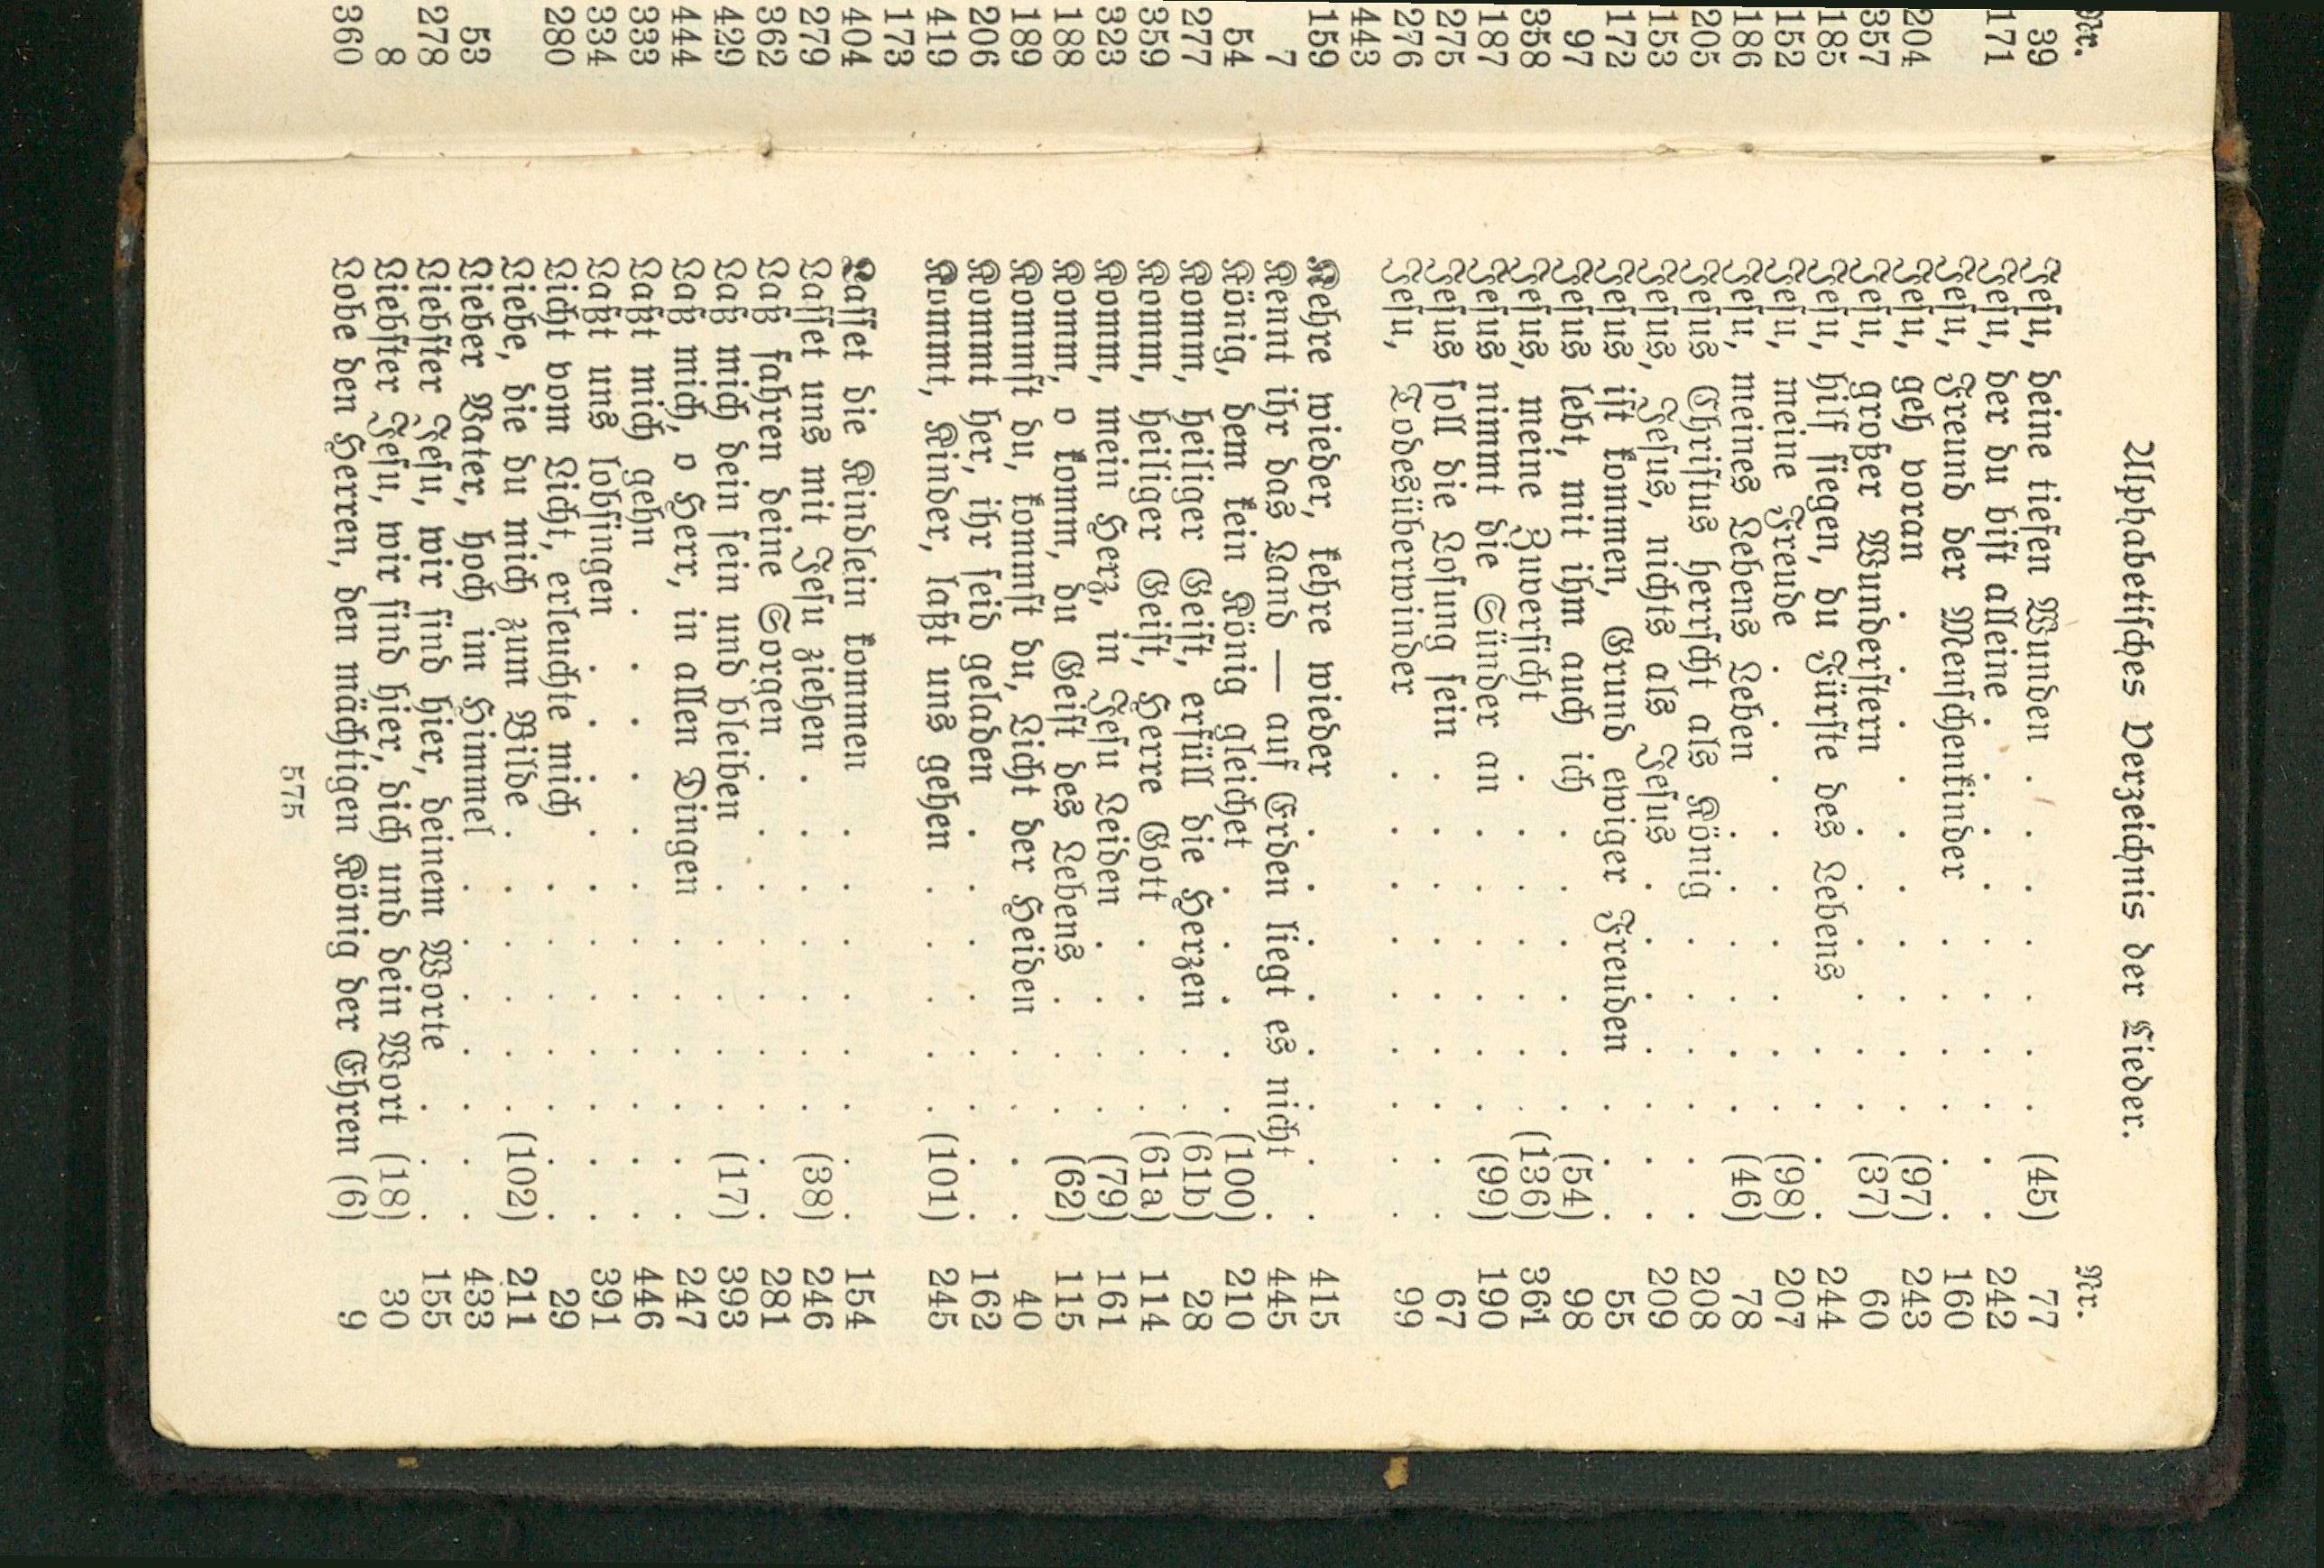 Nr.
39
171
204
357
185
152
186
205
153
172
97
358
187
275
276
443
159
7
54
277
359
323
188
189
206
419
173
404
279
362
429
444
333
334
280
53
278
8
360
Alphabetisches Verzeichnis der Lieder.
Nr.
Jesu, deine tiefen Wunden . . . . . . . (45) 77
Jesu, der du bist alleine . . . . . . . . . . 242
Jesu, Freund der Menschenkinder . . . . . . 160
Jesu, geh voran . . . . . . . . . . (97) 243
Jesu, großer Wunderstern . . . . . . (37) 60
Jesu, hilf siegen, du Fürste des Lebens . . . . 244
Jesu, meine Freude . . . . . . . . . (98) 207
Jesu, meines Lebens Leben . . . . . . (46) 78
Jesus Christus herrscht als König . . . . . . 208
Jesus, Jesus, nichts als Jesus . . . . . . . 209
Jesus ist kommen, Grund ewiger Freuden . . . 55
Jesus lebt, mit ihm auch ich . . . . . . (54) 98
Jesus, meine Zuversicht . . . . . . . (136) 361
Jesus nimmt die Sünder an . . . . . . (99) 190
Jesus soll die Losung sein . . . . . . . . . 67
Jesu, Todesüberwinder . . . . . . . . . 99
Kehre wieder, kehre wieder . . . . . . . . 415
Kennt ihr das Land — auf Erden liegt es nicht . 445
König, dem kein König gleichet . . . . . (100) 210
Komm, heiliger Geist, erfüll die Herzen . . (61b) 28
Komm, heiliger Geist, Herre Gott . . . . (61a) 114
Komm, mein Herz, in Jesu Leiden . . . . . (79) 161
Komm, o komm, du Geist des Lebens . . . (62) 115
Kommst du, kommst du, Licht der Heiden . . . . 40
Kommt her, ihr seid geladen . . . . . . . . 162
Kommt, Kinder, laßt uns gehen . . . . . (101) 245
Lasset die Kindlein kommen . . . . . . . . 154
Lasset uns mit Jesu ziehen . . . . . . . (38) 246
Laß fahren deine Sorgen . . . . . . . . . 281
Laß mich dein sein und bleiben . . . . . (17) 393
Laß mich, o Herr, in allen Dingen . . . . . . 247
Laßt mich gehn . . . . . . . . . . . . 446
Laßt uns lobsingen . . . . . . . . . . . 391
Licht vom Licht, erleuchte mich . . . . . . . 29
Liebe, die du mich zum Bilde . . . . . . (102) 211
Lieber Vater, hoch im Himmel . . . . . . . 433
Liebster Jesu, wir sind hier, deinem Worte . . . 155
Liebster Jesu, wir sind hier, dich und dein Wort (18) 30
Lobe den Herren, den mächtigen König der Ehren (6) 9
575